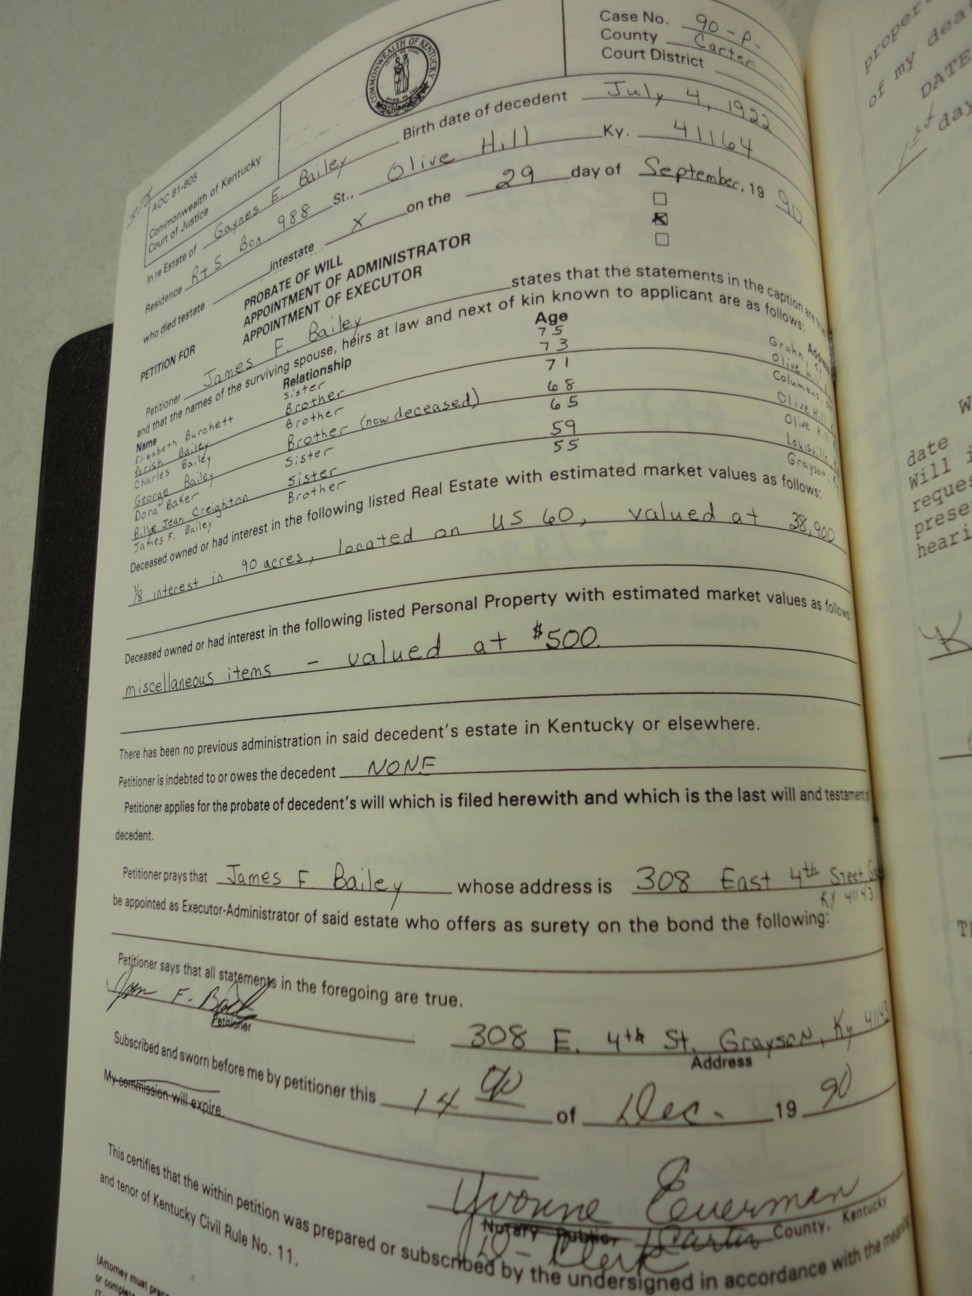 AOC 81-805
Commonwealth of Kentucky
Court of Justice
COMMONWEALTH OF KENTUCKY
Case No. 90-P-
County Carter
Court District
In re Estate of Gaynes E. Bailey Birth date of decedent July 4, 1922
Residence Rt 5 Box 988 St., Olive Hill Ky. 41164
who died testate intestate X on the 29 day of September, 19 90
PETITION FOR
PROBATE OF WILL ☐
APPOINTMENT OF ADMINISTRATOR ☒
APPOINTMENT OF EXECUTOR ☐
Petitioner James F. Bailey states that the statements in the caption are true
and that the names of the surviving spouse, heirs at law and next of kin known to applicant are as follows:
Name Relationship Age Address
Elizabeth Burchett Sister 75 Grahn, Ky
Parish Bailey Brother 73 Olive Hill
Charles Bailey Brother 71 Columbus
George Bailey Brother (now deceased) 68 Olive Hill
Dora Baker Sister 65 Olive Hill
Billie Jean Creighton Sister 59 Louisville
James F. Bailey Brother 55 Grayson
Deceased owned or had interest in the following listed Real Estate with estimated market values as follows:
1/8 interest in 90 acres, located on US 60, valued at 38,900
Deceased owned or had interest in the following listed Personal Property with estimated market values as follows:
miscellaneous items - valued at $500.
There has been no previous administration in said decedent's estate in Kentucky or elsewhere.
Petitioner is indebted to or owes the decedent NONE
Petitioner applies for the probate of decedent's will which is filed herewith and which is the last will and testament
decedent.
Petitioner prays that James F Bailey whose address is 308 East 4th Street
Ky 41143
be appointed as Executor-Administrator of said estate who offers as surety on the bond the following:
Petitioner says that all statements in the foregoing are true.
Petitioner
308 E. 4th St. Grayson, Ky 41143
Address
Subscribed and sworn before me by petitioner this 14 of Dec. 19 90
My commission will expire
Yvonne Everman
Notary Public Carter County, Kentucky
Clerk
This certifies that the within petition was prepared or subscribed by the undersigned in accordance with the
and tenor of Kentucky Civil Rule No. 11.
(Attorney must
or
of my
DATE
1st day
date
Will
heari